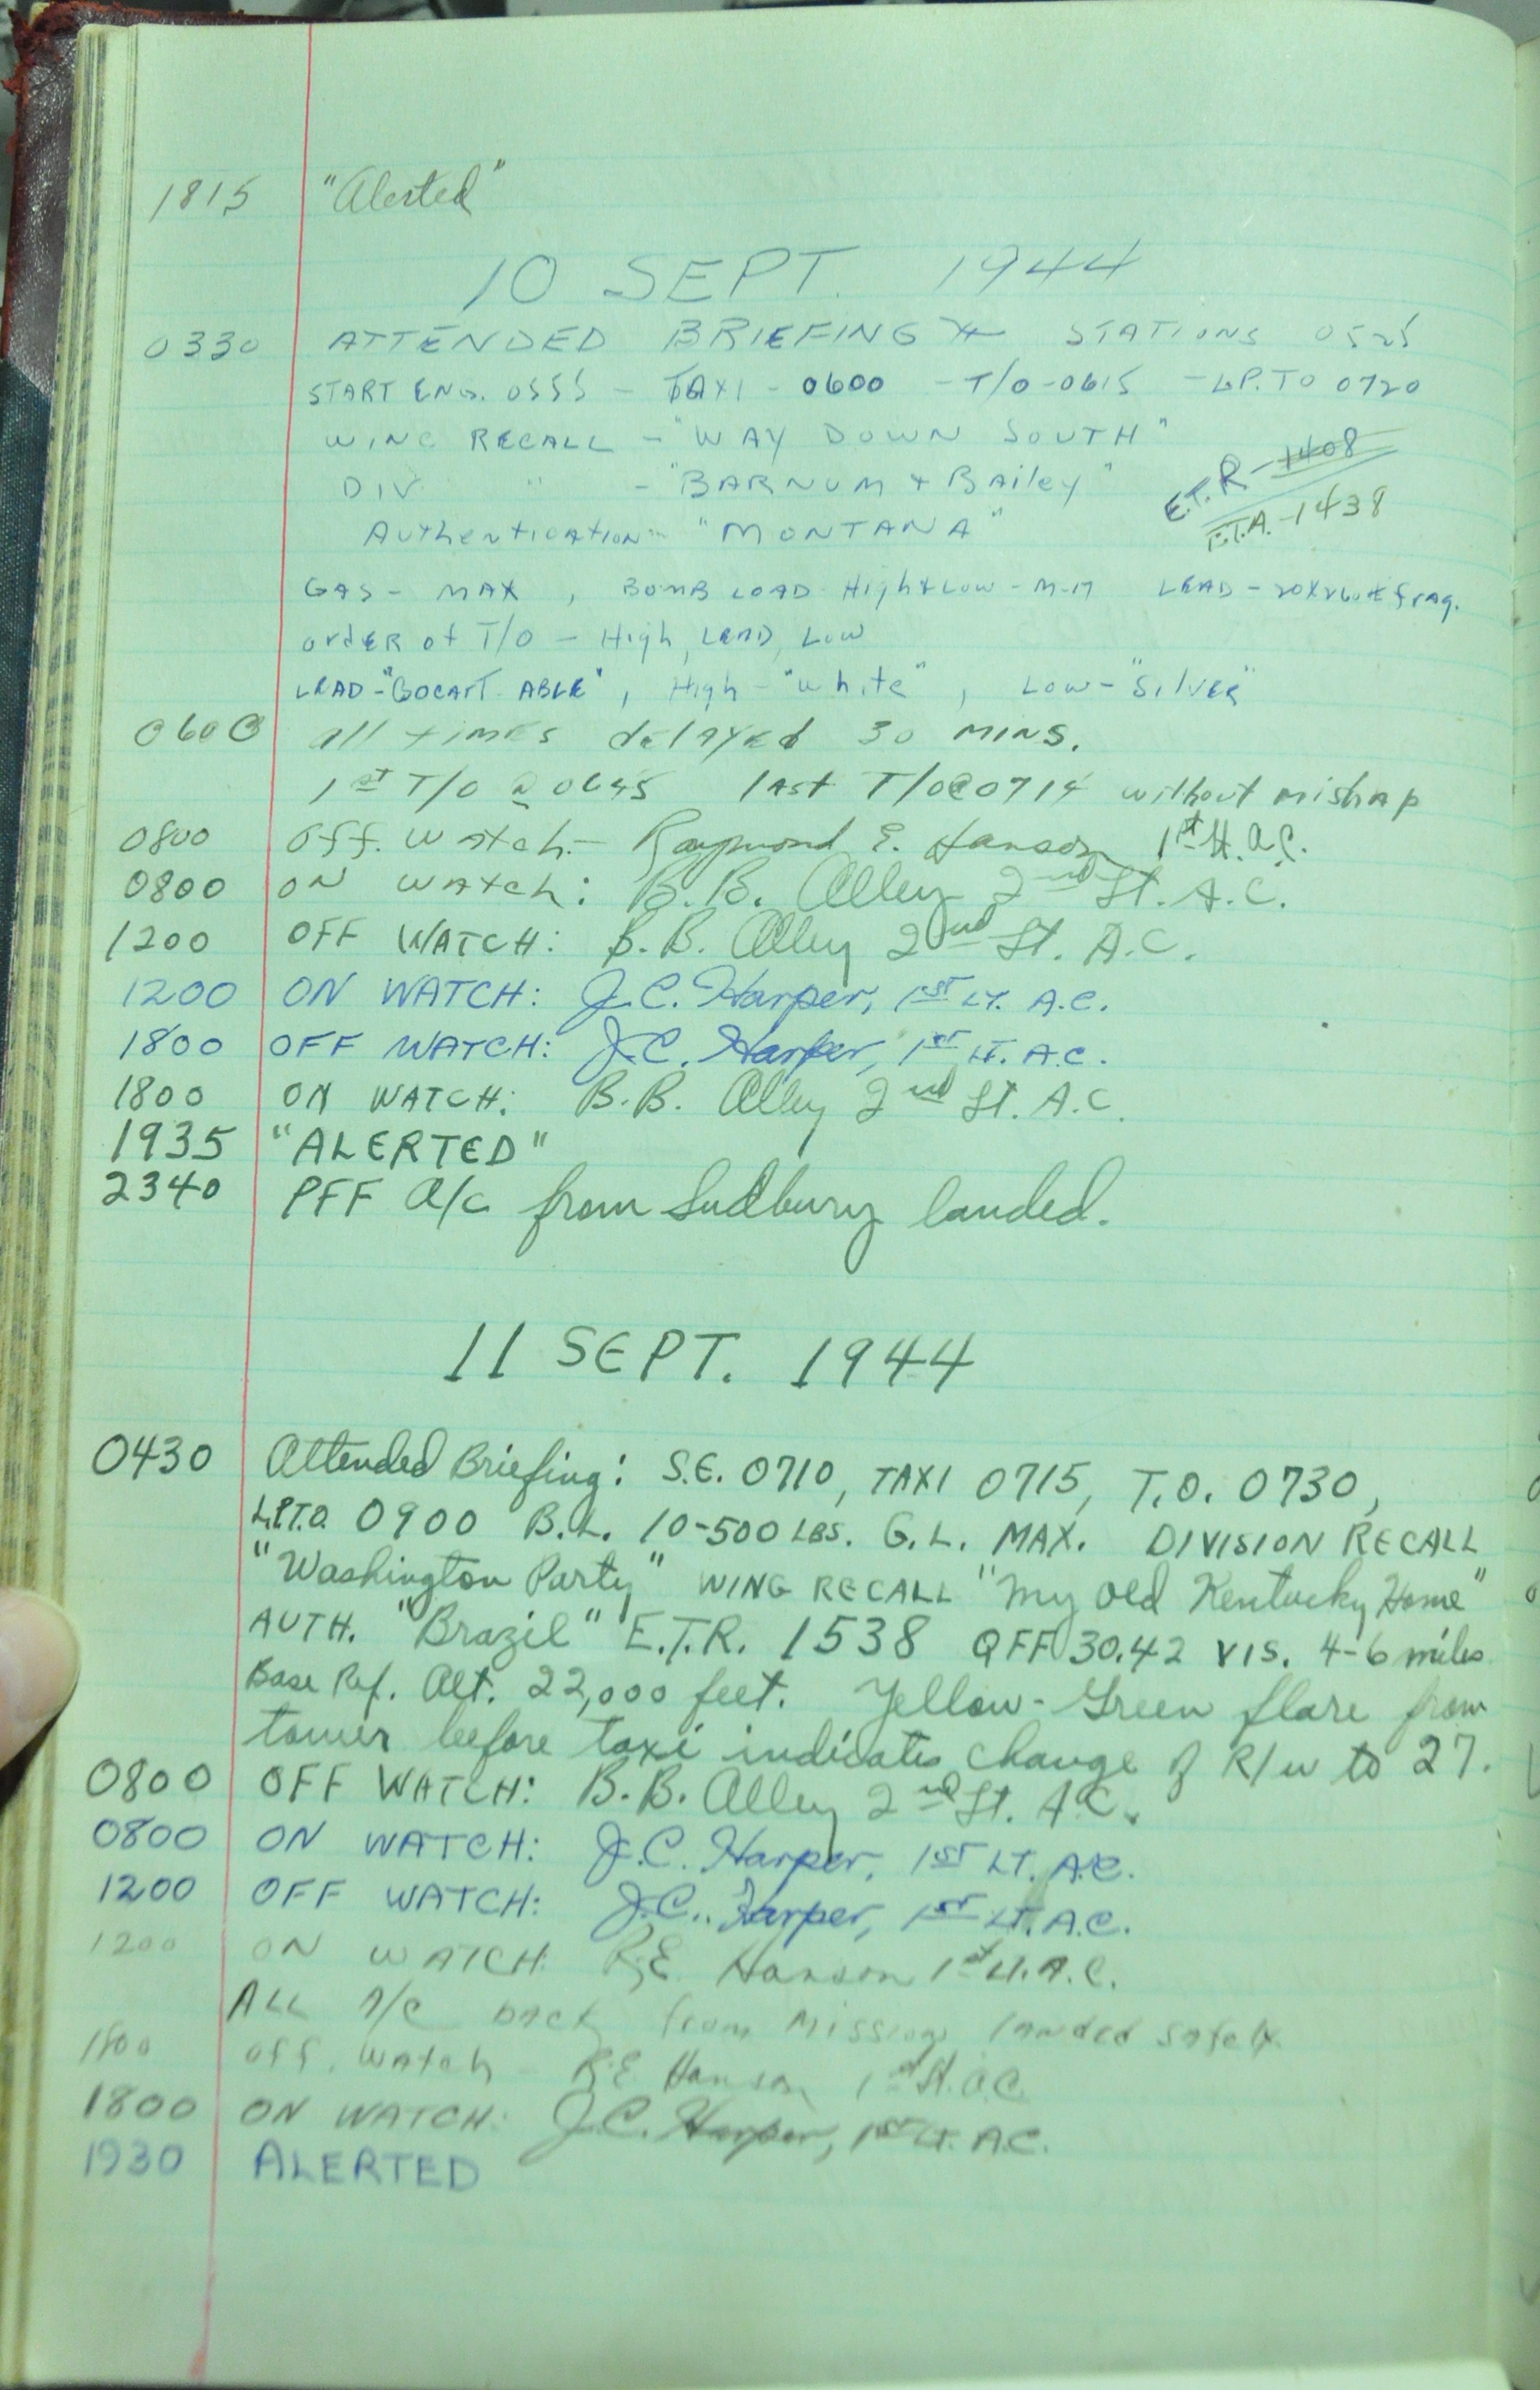 1815 "Alerted"
10 SEPT. 1944
0330 ATTENDED BRIEFING STATIONS 0525
START ENG. 0555 - TAXI - 0600 - T/O - 0615 - L.P.T.O 0720
WING RECALL - "WAY DOWN SOUTH"
DIV " - "BARNUM + BAiley"
E.T.R - 1408
Authentication - "MONTANA"
E.T.A. - 1438
GAS - MAX , BOMB LOAD - High & Low - M-17 LEAD - 20X260# frag.
order of T/O - High, LEAD, Low
LEAD - "GOCART ABLE", High - "White", Low - "SilVER"
0600 all times delayed 30 MINS.
1st T/O @ 0645 last T/O @ 0714 without mishap
0800 Off. Watch. - Raymond E. Hanson 1st Lt. A.C.
0800 ON WATCH: B.B. Alley 2nd Lt. A.C.
1200 OFF WATCH: B.B. Alley 2nd Lt. A.C.
1200 ON WATCH: J.C. Harper, 1ST LT. A.C.
1800 OFF WATCH: J.C. Harper, 1ST LT. A.C.
1800 ON WATCH: B.B. Alley 2nd Lt. A.C.
1935 "ALERTED"
2340 PFF a/c from Sudbury landed.
11 SEPT. 1944
0430 Attended Briefing: S.E. 0710, TAXI 0715, T.O. 0730,
L.P.T.O. 0900 B.L. 10-500 LBS. G.L. MAX. DIVISION RECALL
"Washington Party" WING RECALL "My Old Kentucky Home"
AUTH. "Brazil" E.T.R. 1538 QFF 30.42 VIS. 4-6 miles
Base Ref. Alt. 22,000 feet. Yellow-Green flare from
tower before taxi indicates change of R/W to 27.
0800 OFF WATCH: B.B. Alley 2nd Lt. A.C.
0800 ON WATCH: J.C. Harper, 1ST LT. A.C.
1200 OFF WATCH: J.C. Harper, 1ST LT. A.C.
1200 ON WATCH: R.E. Hanson 1st Lt. A.C.
ALL A/C back from Mission landed safely.
1800 Off. Watch - R.E. Hanson 1st Lt. A.C.
1800 ON WATCH: J.C. Harper, 1ST LT. A.C.
1930 ALERTED